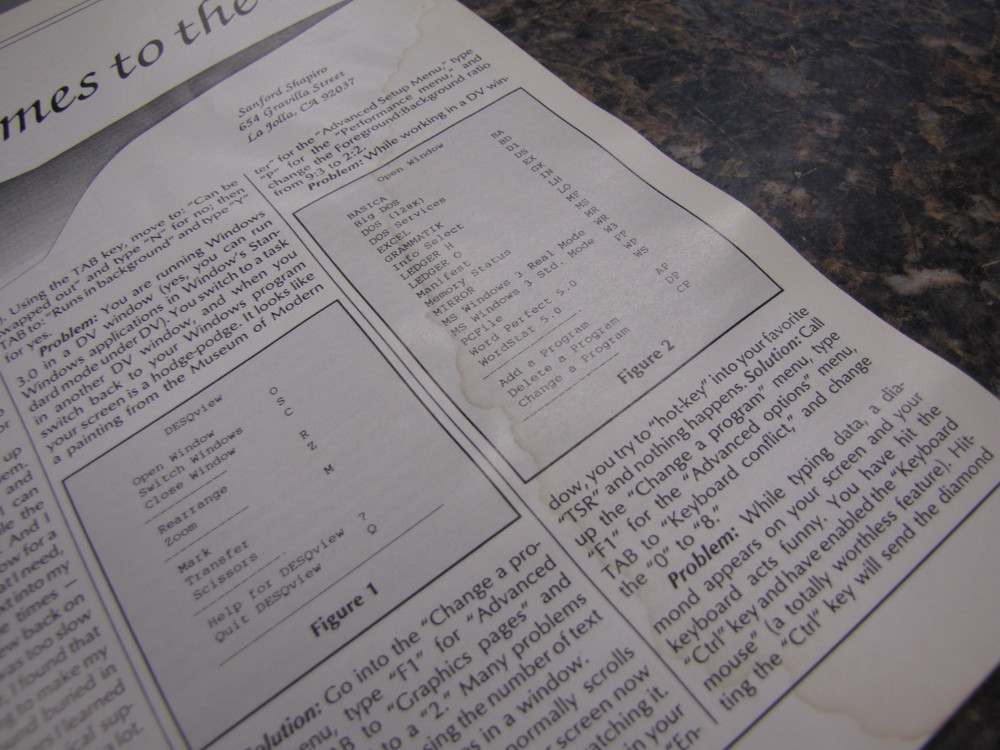 mes to the
Sanford Shapiro
654 Gravilla Street
La Jolla, CA 92037
up
em.
and
I can
And I
ow for a
at I need,
ext into my
times —
back on
as too slow
I found that
ng to make my
and buried in
I learned
cal sup-
a lot.
). Using the TAB key, move to: "Can be
swapped out" and type "N" for no; then
TAB to: "Runs in background" and type "Y"
for yes.
Problem: You are running Windows
3.0 in a DV window (yes, you can run
Windows applications in Window's Stan-
dard mode under DV). You switch to a task
in another DV window, and when you
switch back to your Windows program
your screen is a hodge-podge. It looks like
a painting from the Museum of Modern
DESQview
Open Window O
Switch Windows S
Close Window C
Rearrange R
Zoom Z
Mark M
Transfer
Scissors
Help for DESQview ?
Quit DESQview Q
Figure 1
Solution: Go into the "Change a pro-
menu, type "F1" for "Advanced
to "Graphics pages" and
to a "2." Many problems
using the number of text
in a window.
normally scrolls
screen now
atching it.
in your
"En-
ter" for the "Advanced Setup Menu," type
"P" for the "Performance menu," and
change the Foreground:Background ratio
from 9:3 to 2:2.
Problem: While working in a DV win-
Open Window
BASICA BA
Big DOS BD
DOS (128K) D1
DOS Services DS
EXCEL EX
GRAMMATIK GX
Info Select IN
LEDGER H LH
LEDGER O LO
Manifest MF
Memory Status MS
MIRROR MR
MS Windows 3 Real Mode WR
MS Windows 3 Std. Mode W3
PCFile PF
Word Perfect 5.0 WP
WordStar 5.0 WS
Add a Program AP
Delete a Program DP
Change a Program CP
Figure 2
dow, you try to "hot-key" into your favorite
"TSR" and nothing happens. Solution: Call
up the "Change a program" menu, type
"F1" for the "Advanced options" menu,
TAB to "Keyboard conflict," and change
the "0" to "8."
Problem: While typing data, a dia-
mond appears on your screen and your
keyboard acts funny. You have hit the
"Ctrl" key and have enabled the "Keyboard
mouse" (a totally worthless feature). Hit-
ting the "Ctrl" key will send the diamond